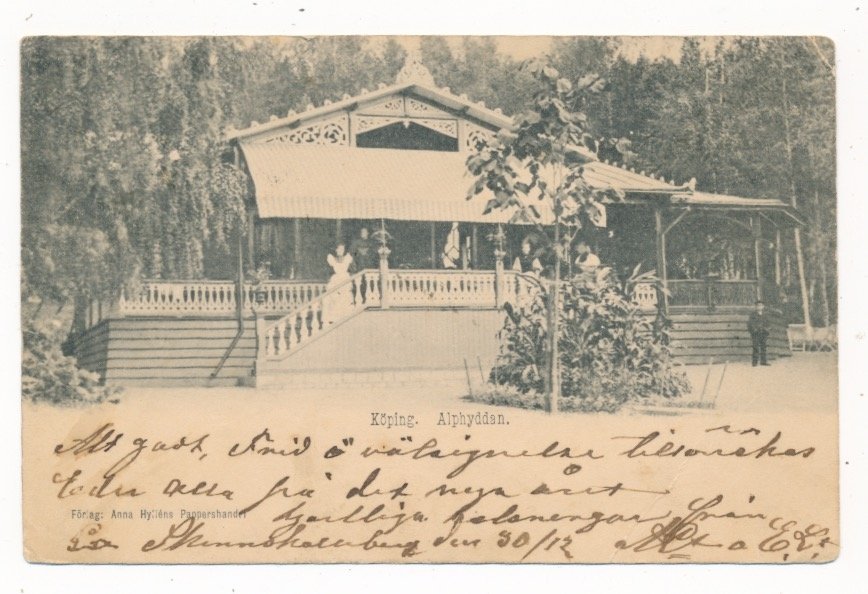 Köping. Alphyddan.
Alt godt, Frid o välsignelse tillönskas
Eder alla på det nya året
Förlag: Anna Hylléns Pappershandel
hjertliga helsningar från
den 30/12